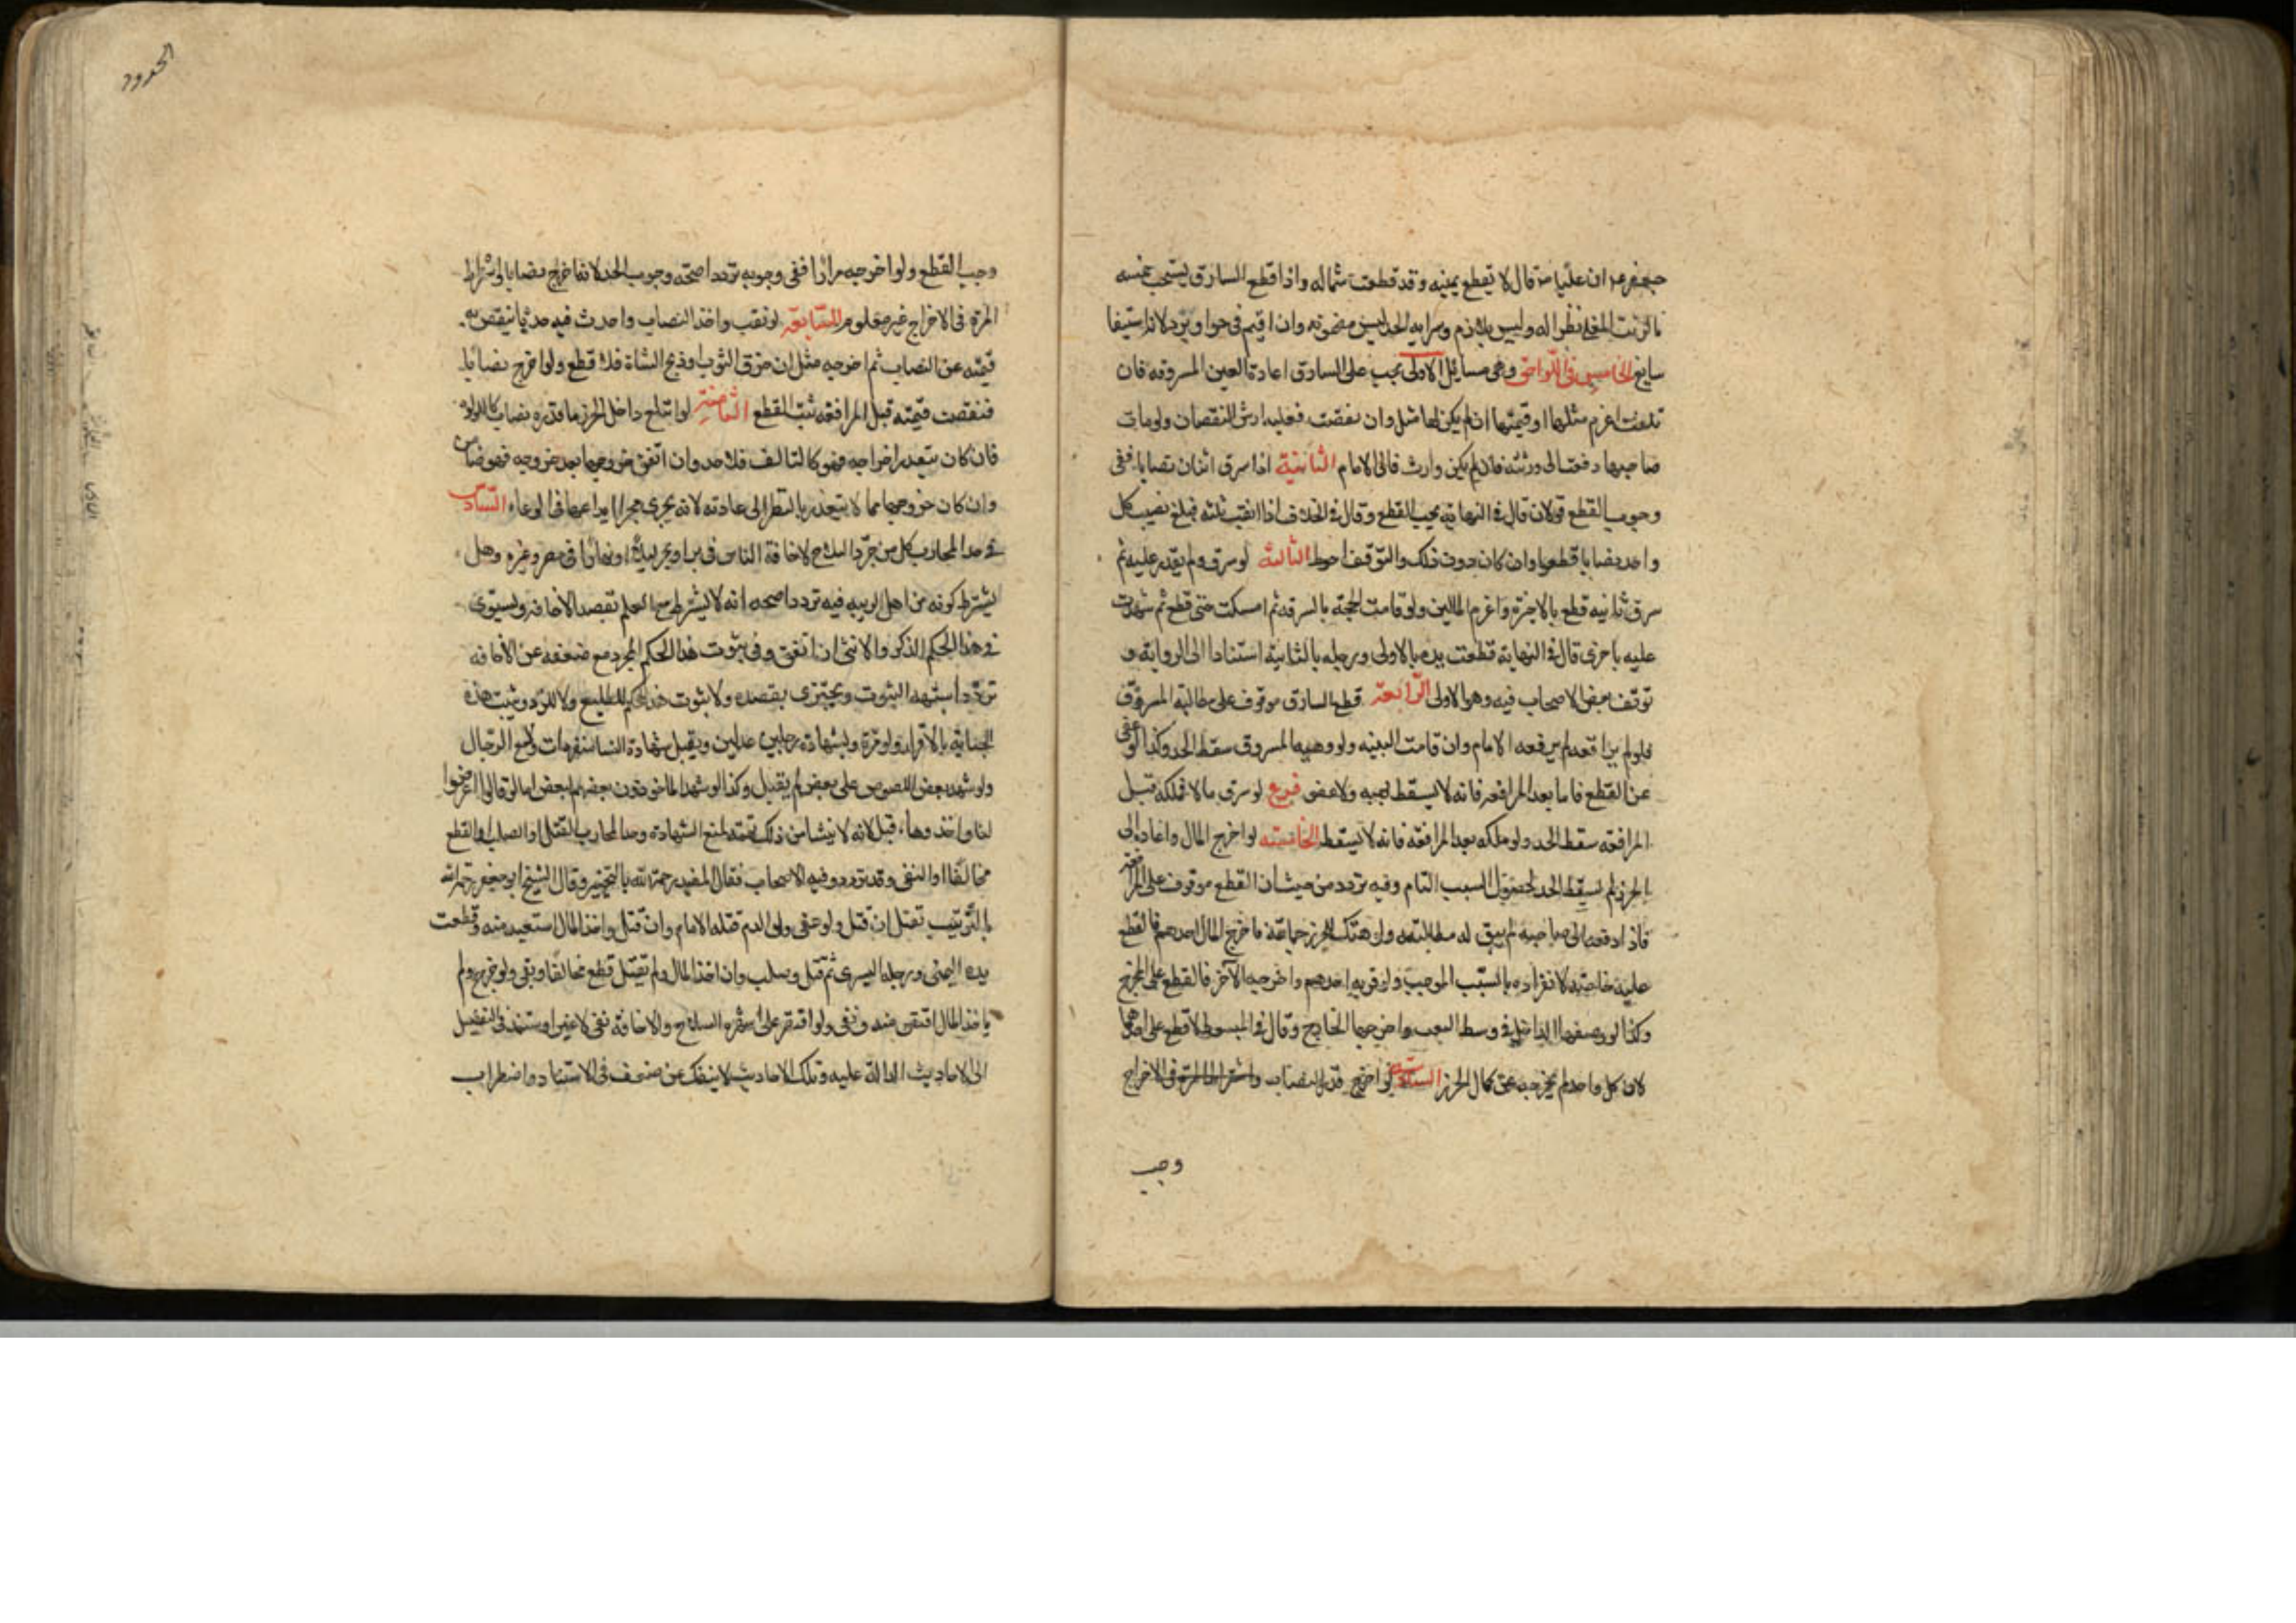 جعفر عم ان عليا عم قال لا تقطع يمينه وقد قطعت شماله واذا قطع السارق يستحب حسمه
بالزيت المغلي نظرا له وليس بلازم وسراية الحد ليس مضمونه وان اقيم في حر او برد لانه استيفا
سايغ الخامس في اللواحق وهى مسائل الاولى يجب على السارق اعادة العين المسروقه فان
تلفت اغرم مثلها او قيمتها ان لم يكن لها مثل وان نقصت فعليه ارش النقصان ولو مات
صاحبها دفعت الى ورثته فان لم يكن وارث فالى الامام الثانية اذا سرق اثنان نصابا ففى
وجوب القطع قولان قال في النهاية يجب القطع وقال في الخلاف اذا نقب ثلثه فبلغ نصيب كل
واحد نصابا قطعوا وان كان دون ذلك والتوقف احوط الثالثة لو سرق ولم يقدر عليه ثم
سرق ثانيه قطع بالاخرة واغرم المالين ولو قامت الحجة بالسرقه ثم امسكت حتى قطع ثم شهدت
عليه باخرى قال في النهاية قطعت يده بالاولى ورجله بالثانية استنادا الى الرواية و
توقف بعض الاصحاب فيه وهو الاولى الرابعة قطع السارق موقوف على مطالبة المسروق
فلو لم يرافعه لم يرفعه الامام وان قامت البينه ولو وهبه المسروق سقط الحد وكذا لو عفى
عن القطع فاما بعد المرافعه فانه لا يسقط بهبه ولا عفو فرع لو سرق مالا فملكه قبل
المرافعه سقط الحد ولو ملكه بعد المرافعه فانه لا يسقط الخامسة لو اخرج المال واعاده الى
الحرز لم يسقط الحد لحصول السبب التام وفيه تردد من حيث ان القطع موقوف على المرافعة
فاذا دفعه الى صاحبه لم يبق له مطالبته ولو هتك الحرز جماعة فاخرج المال احدهم فالقطع
عليه خاصة لانفراده بالسبب الموجب ولو قربه احدهم واخرجه الآخر فالقطع على المخرج
وكذا لو وضعها الداخل في وسط النقب واخرجها الخارج وقال في المبسوط لا قطع على احدهما
لان كل واحد لم يخرجه عن كمال الحرز السادسة لو اخرج قدر النصاب واشتراط المرة في الاخراج
وجب
الحدود
وجب القطع ولو اخرجه مرارا ففى وجوبه تردد اصحه وجوب الحد لانه اخرج نصابا واشتراط
المرة في الاخراج غير معلوم السابعة لو نقب واخذ النصاب واحدث فيه حدثا ينقص به
قيمته عن النصاب ثم اخرجه مثل ان خرق الثوب او ذبح الشاة فلا قطع ولو اخرج نصابا
فنقصت قيمته قبل المرافعه ثبت القطع الثامنة لو ابتلع داخل الحرز ما قدره نصاب كاللولو
فان كان يتعذر اخراجه فهو كالتالف فلا حد وان اتفق خروجها بعد خروجه فهو ضامن
وان كان خروجها مما لا يتعذر بالنظر الى عادته لانه يجرى مجرى ايداعها في الوعاء السادس
في حد المحارب كل من جرد السلاح لاخافة الناس في بر او بحر ليلا او نهارا في مصر وغيره وهل
يشترط كونه من اهل الريبه فيه تردد اصحه انه لا يشترط مع العلم بقصد الاخافه ويستوى
في هذا الحكم الذكر والانثى ان اتفق وفى ثبوت هذا الحكم للمجرد مع ضعفه عن الاخافه
تردد اشبهه الثبوت ويجتزى بقصده ولا يثبوت هذا الحكم للطليع ولا للردء ويثبت هذه
الجناية بالاقرار ولو مرة وبشهادة رجلين عدلين ويقبل شهادة النسا منفردات ولا مع الرجال
ولو شهد بعض اللصوص على بعض لم يقبل وكذا لو شهد الماخوذون بعضهم لبعض اما لو قالوا عرضوا
لنا واخذوا هاء قبل لانه لا ينشا من ذلك تهمة تمنع الشهادة وحد المحارب القتل او الصلب او القطع
مخالفا او النفى وقد تردد فيه الاصحاب فقال المفيد رحمة الله بالتخيير وقال الشيخ ابو جعفر رحمه الله
بالترتيب تقتل ان قتل ولو عفى ولى الدم قتله الامام وان قتل واخذ المال استعيد منه وقطعت
يده اليمنى ورجله اليسرى ثم قتل وصلب وان اخذ المال ولم يقتل قطع مخالفا ونفى ولو جرح ولم
ياخذ المال اقتص منه ونفى ولو اقتصر على شهر السلاح والاخافة نفى لا غير واستند في التفصيل
الى الاحاديث الدالة عليه وتلك الاحاديث لا ينفك عن ضعف في الاسناد واضطراب